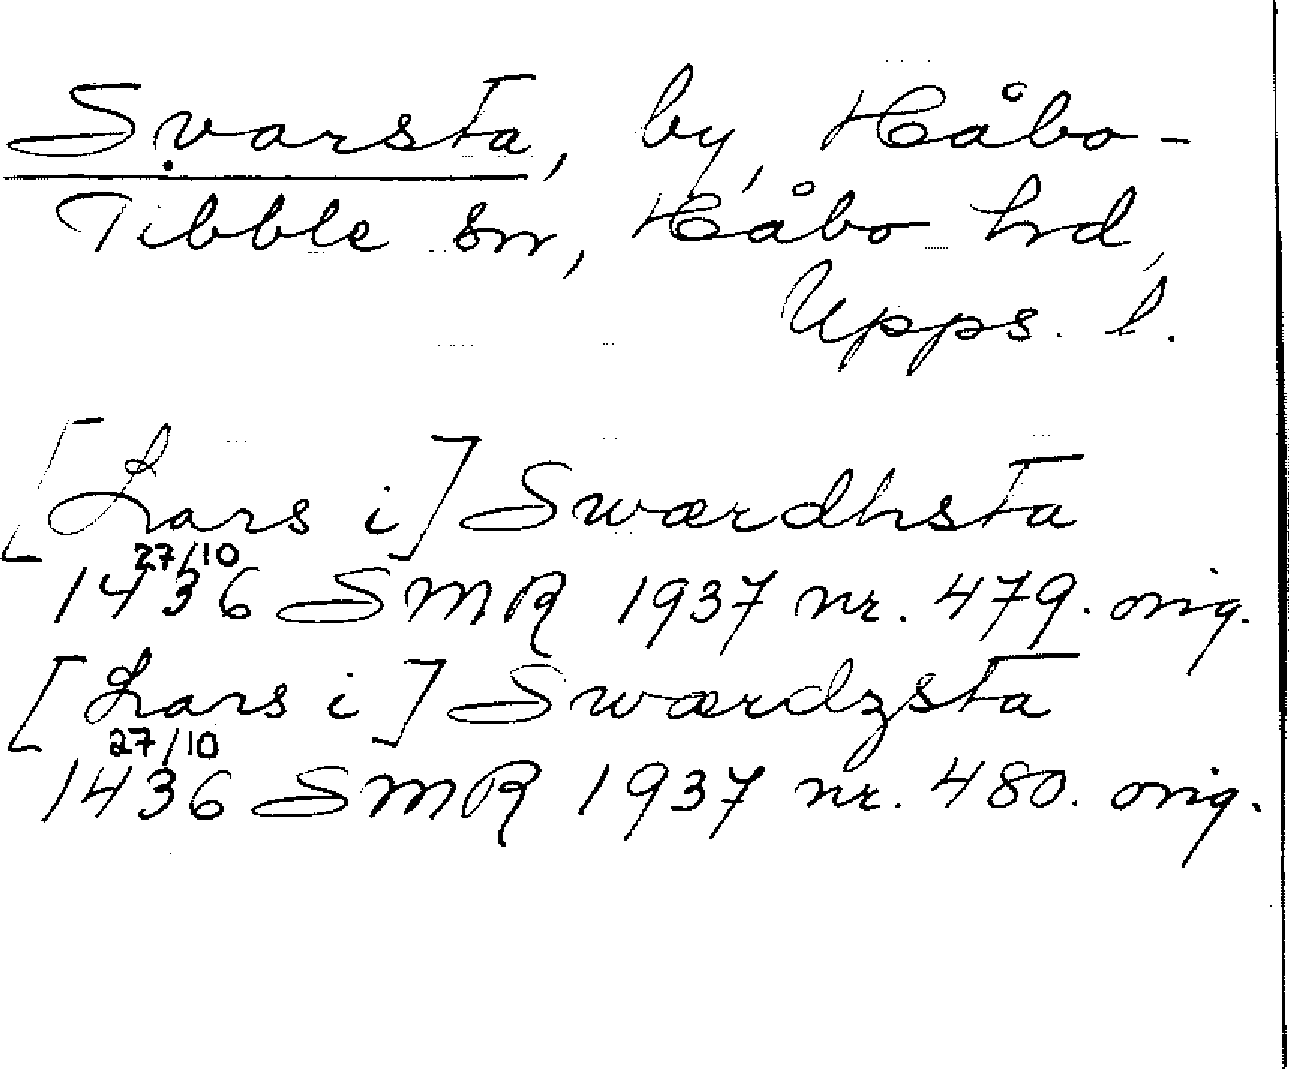 Svarsta, by, Håbo-
Tibble sn, Håbo hrd,
Upps. l.
[Lars i] Swærdhsta
27/10
1436 SMR 1937 nr. 479. orig.
[Lars i] Swærdzsta
27/10
1436 SMR 1937 nr. 480. orig.